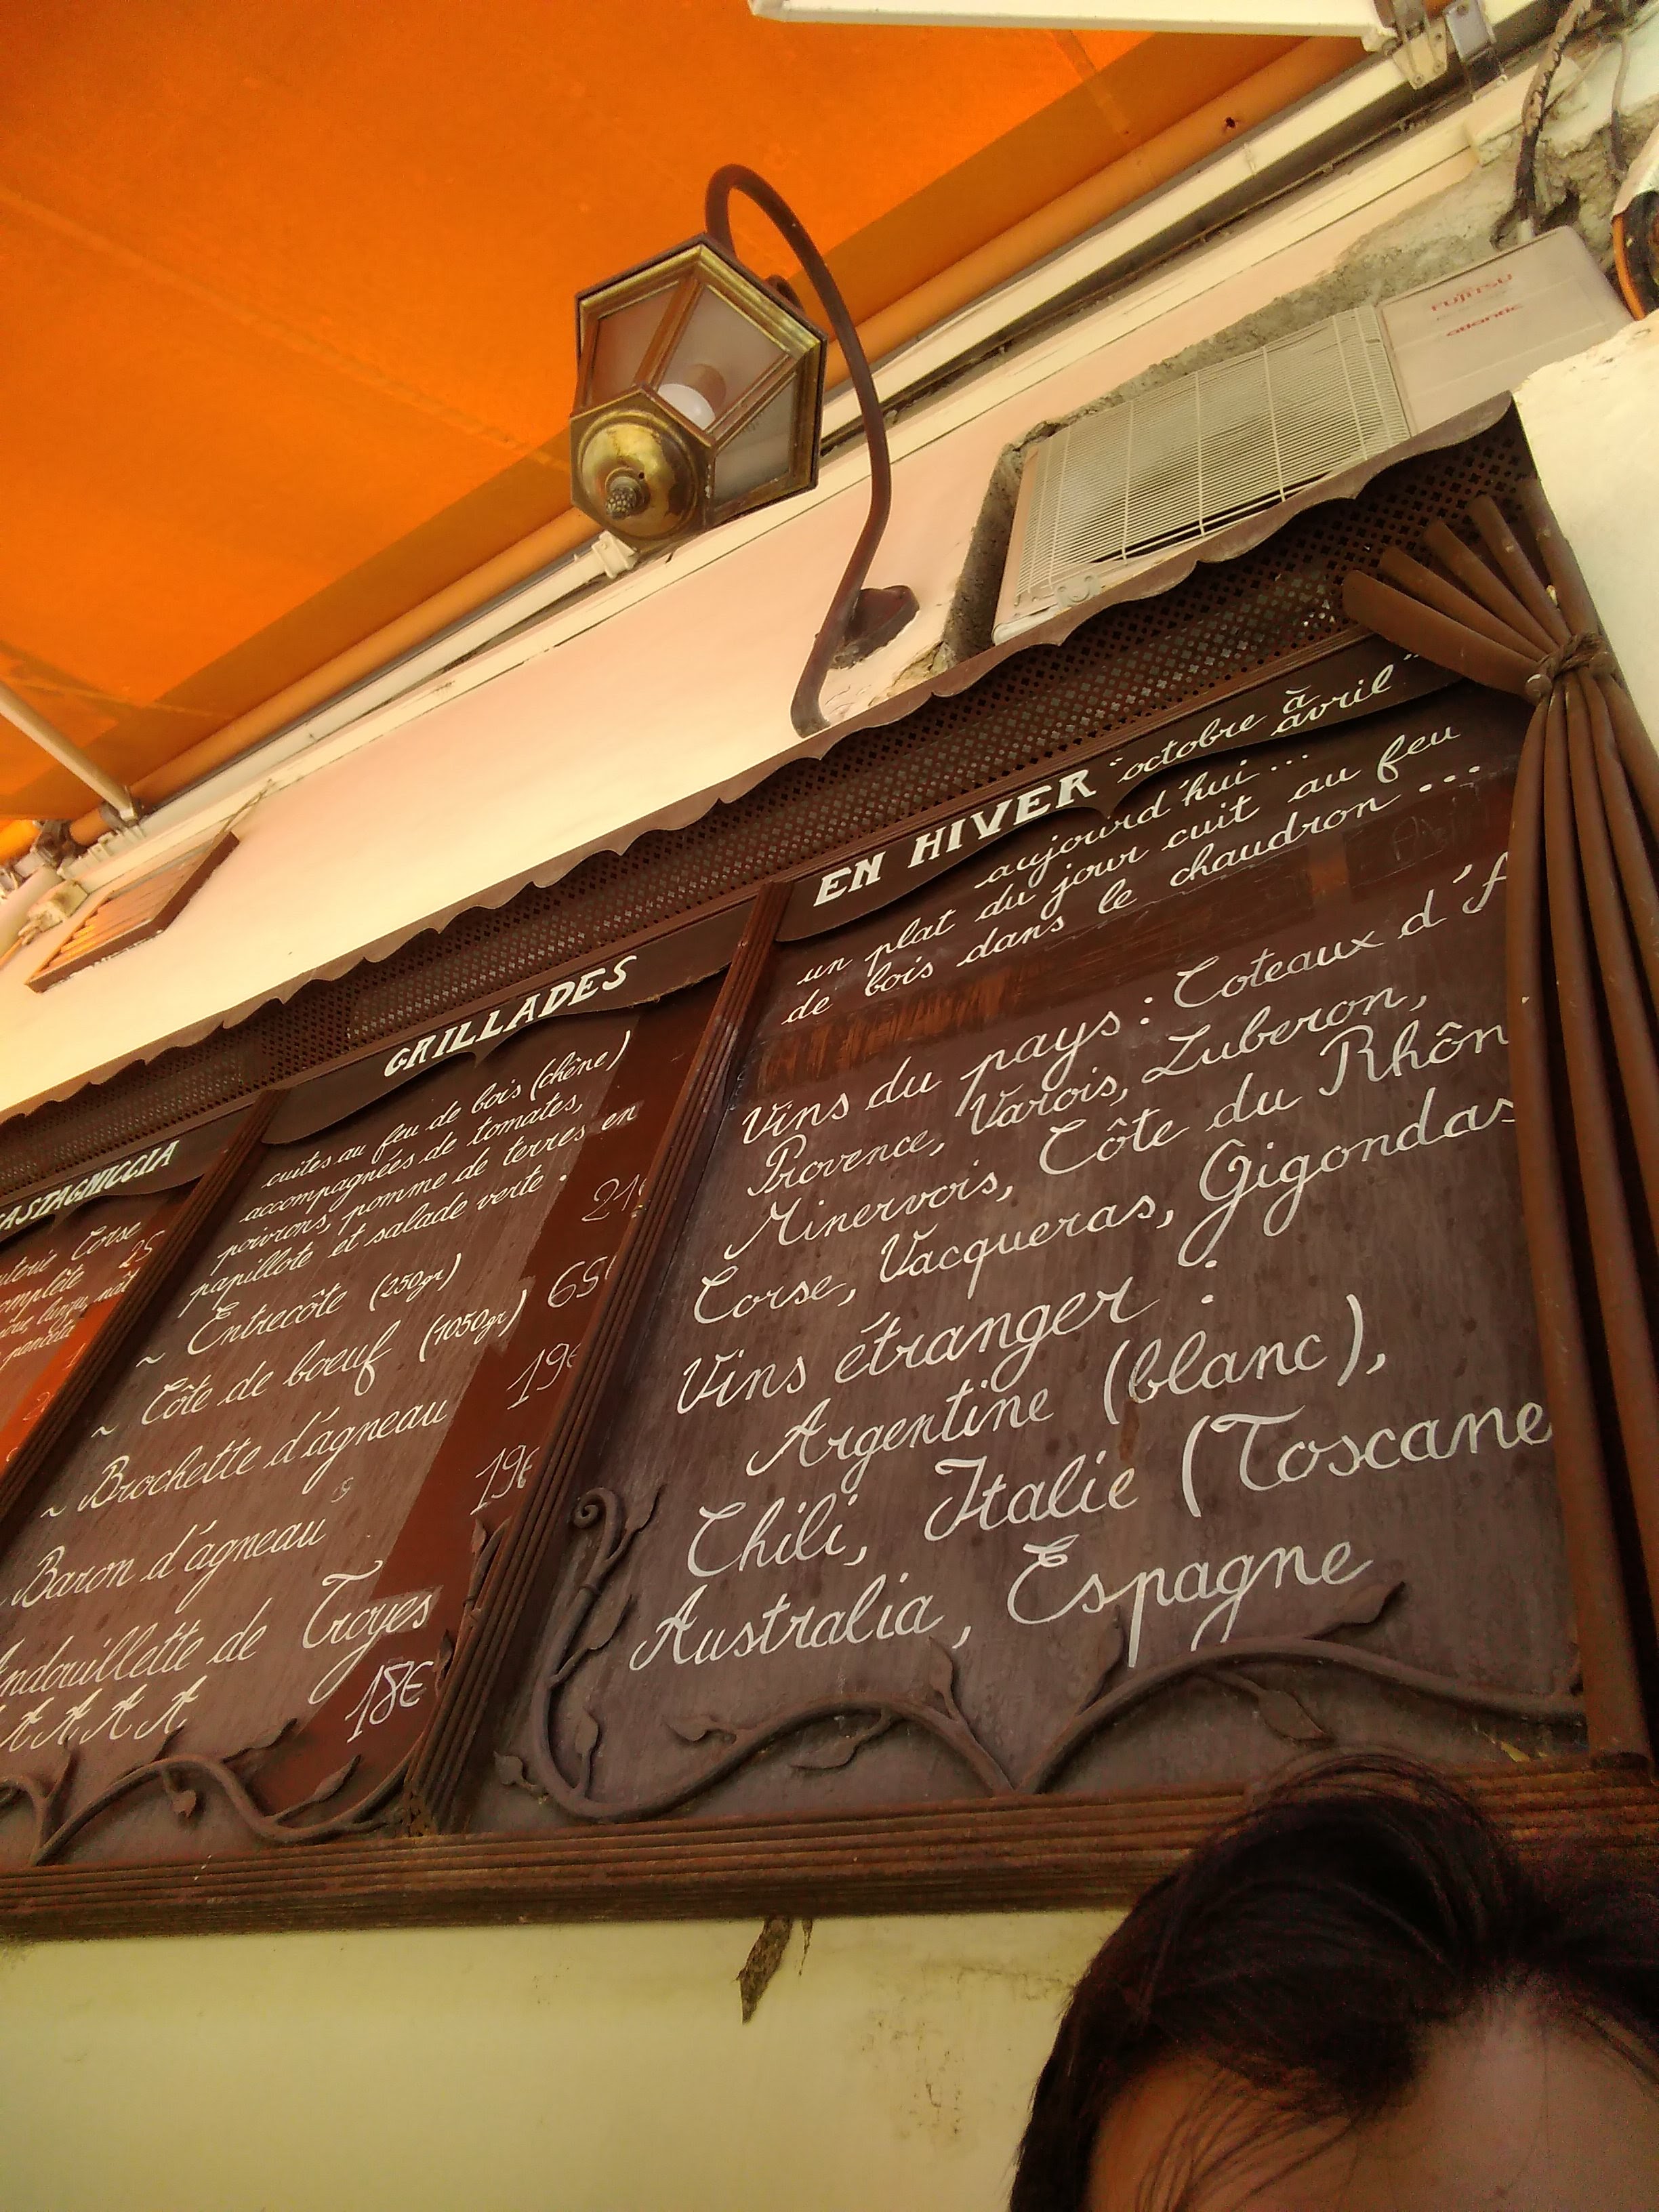 FUJITSU
atlantic
CASTAGNICCIA
Corse
25
pancetta
GRILLADES
cuites au feu de bois (chêne)
accompagnées de tomates,
poivrons, pomme de terres en
papillote et salade verte.
~ Entrecôte (250gr) 21€
~ Côte de boeuf (1050gr) 65€
~ Brochette d'agneau 19€
Baron d'agneau 19€
Andouillette de Troyes
A A A A A 18€
EN HIVER "octobre à avril"
aujourd'hui ...
un plat du jour cuit au feu
de bois dans le chaudron ...
Vins du pays : Coteaux d'A
Provence, Varois, Luberon,
Minervois, Côte du Rhôn
Corse, Vacqueras, Gigondas
Vins étranger :
Argentine (blanc),
Chili, Italie (Toscane
Australia, Espagne